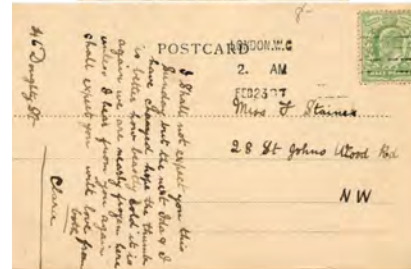 POSTCARD
LONDON.W.C
2. AM
FEB 23 07
Miss F Staines
28 St Johns Wood Rd
NW
46 Doughty St
I shall not expect you this
Sunday but the next Ida & I
have changed hope the thumb
is better how beastly cold it is
again we are nearly frozen here
unless I hear from you again
shall expect you with love from
both
Clarie